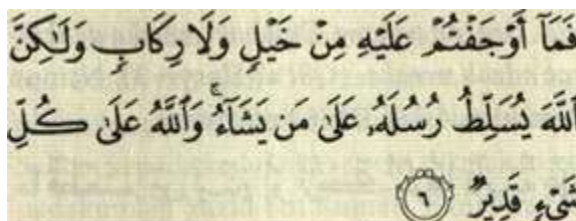 فَمَآ أَوْجَفْتُمْ عَلَيْهِ مِنْ خَيْلٍ وَلَا رِكَابٍ وَلَٰكِنَّ
ٱللَّهَ يُسَلِّطُ رُسُلَهُۥ عَلَىٰ مَن يَشَآءُ ۚ وَٱللَّهُ عَلَىٰ كُلِّ
شَىْءٍ قَدِيرٌ ٦